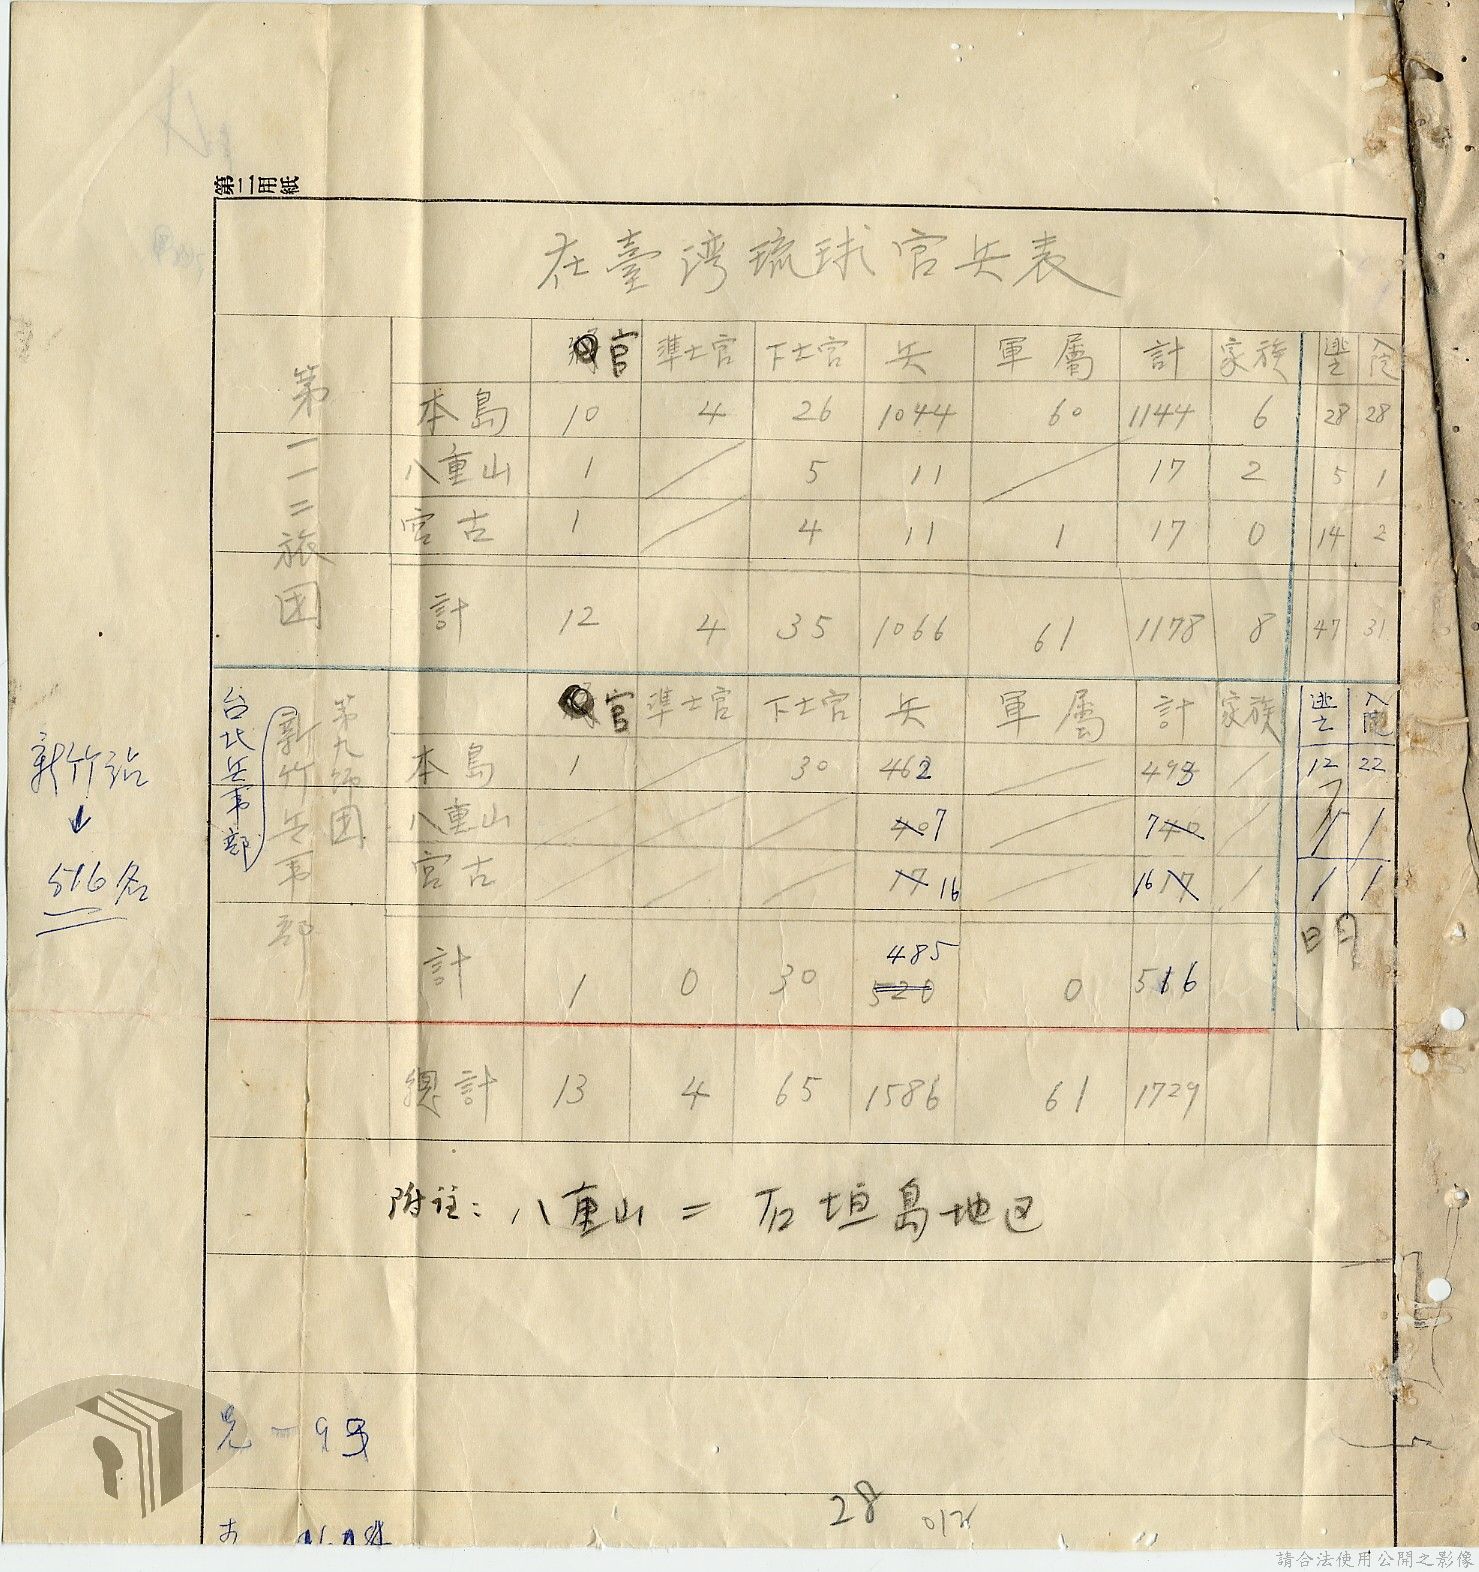 第二用紙
在臺湾琉球官兵表
第一一二旅团
官 準士官 下士官 兵 軍属 計 家族 逃亡 入院
本島 10 4 26 1044 60 1144 6 28 28
八重山 1 / 5 11 / 17 2 5 1
宮古 1 / 4 11 1 17 0 14 2
計 12 4 35 1066 61 1178 8 47 31
第九师团
新竹兵事部
台北兵事部
官 準士官 下士官 兵 軍属 計 家族 逃亡 入院
本島 1 / 30 462 / 493 / 12 22
八重山 / / / 407 / 740 / / /
宮古 / / / 17 16 / 16 17 / 1 1
485
計 1 0 30 520 0 516
明
總計 13 4 65 1586 61 1729
附註：八重山＝石垣島地区
新竹站
↓
516名
28